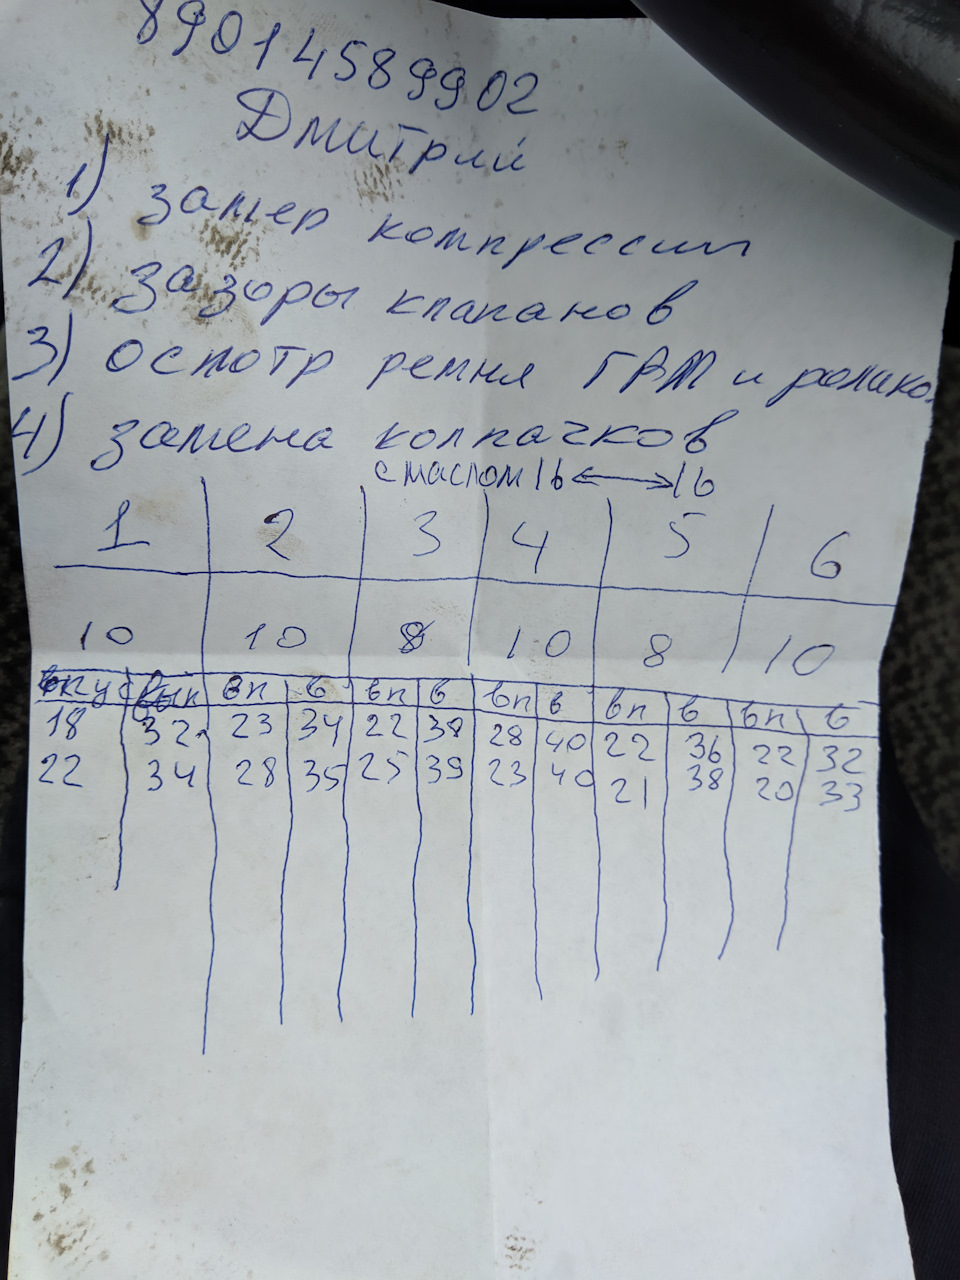 89014589902
Дмитрий
1) замер компрессии
2) зазоры клапанов
3) осмотр ремня ГРМ и ролико
4) замена колпачков
с маслом 16 ←→ 16
1 2 3 4 5 6
10 10 8 10 8 10
впус вып вп в вп в вп в вп в вп в
18 32 23 34 22 38 28 40 22 36 22 32
22 34 28 35 25 39 23 40 21 38 20 33